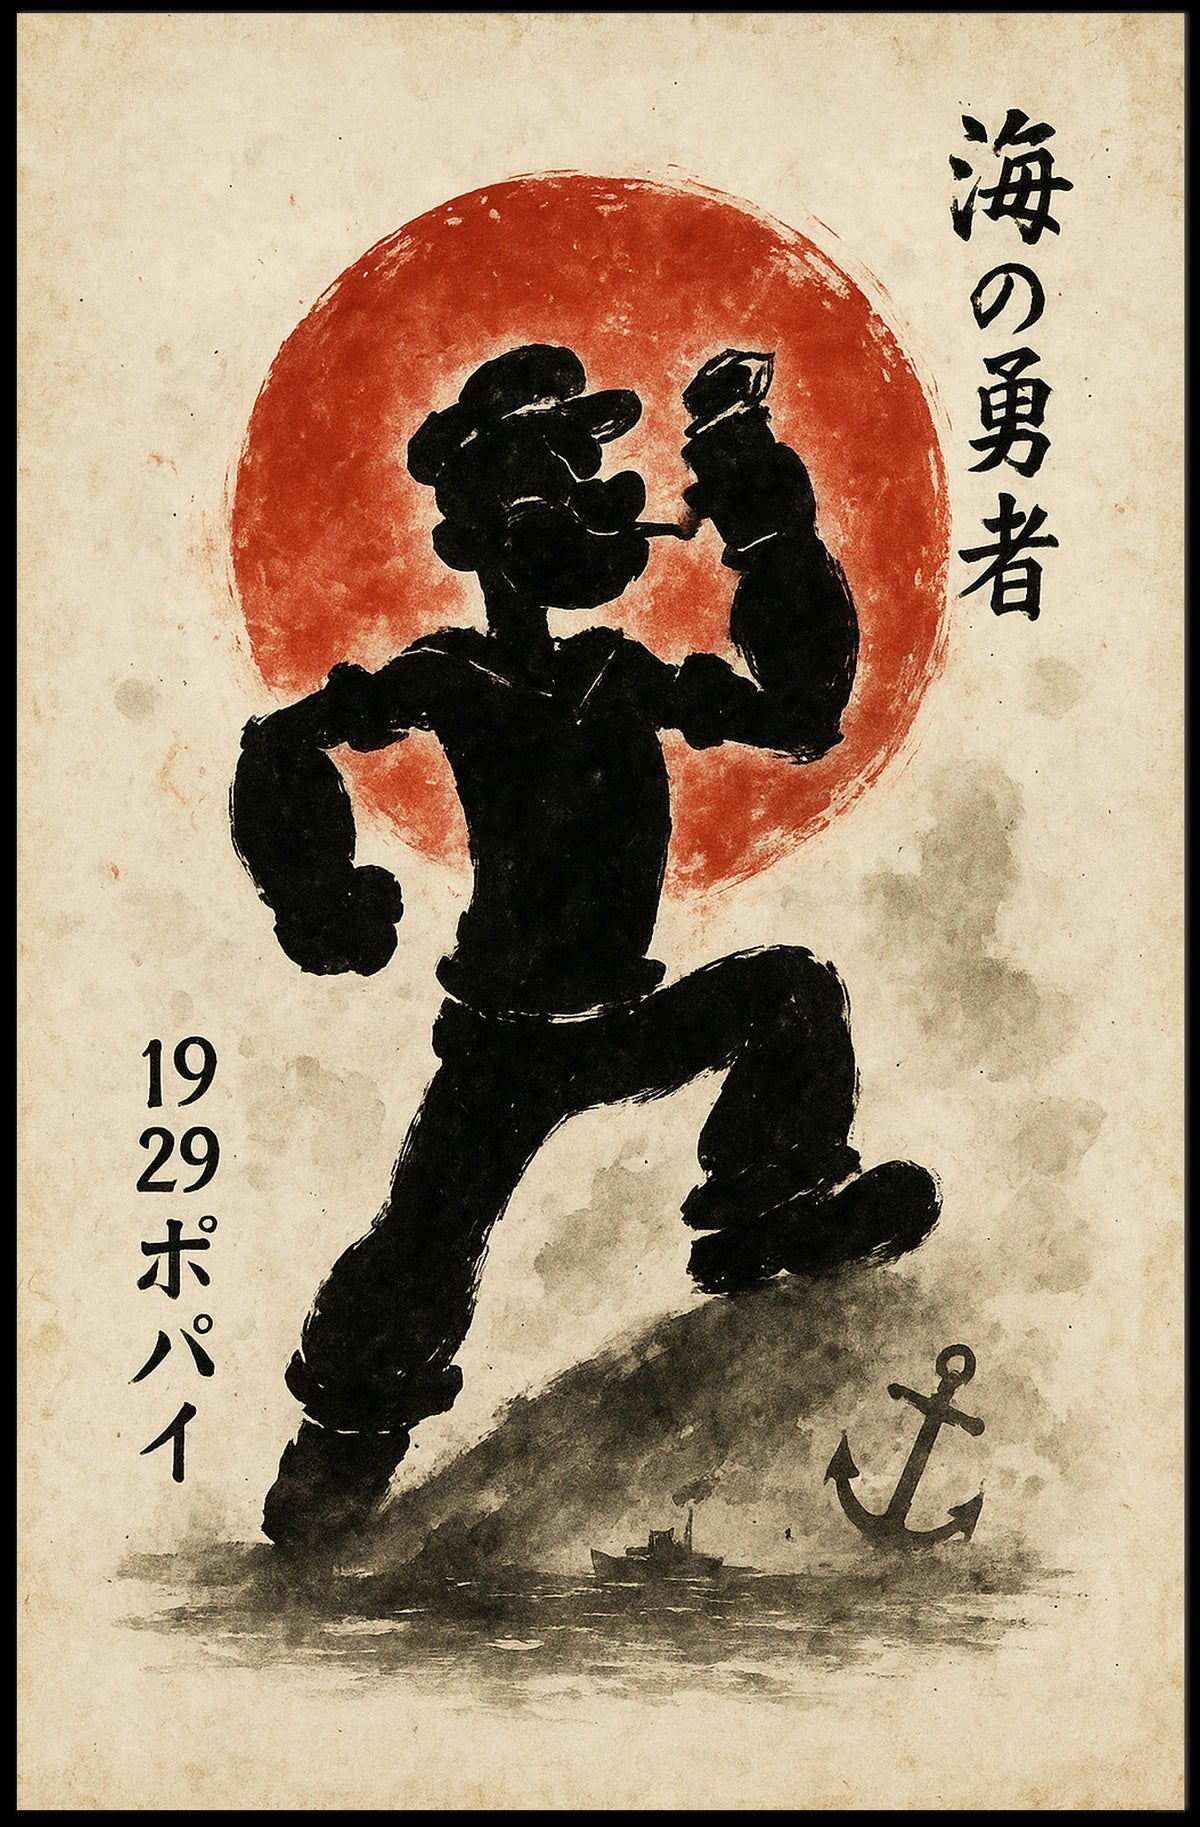 海の勇者
1929ポパイ